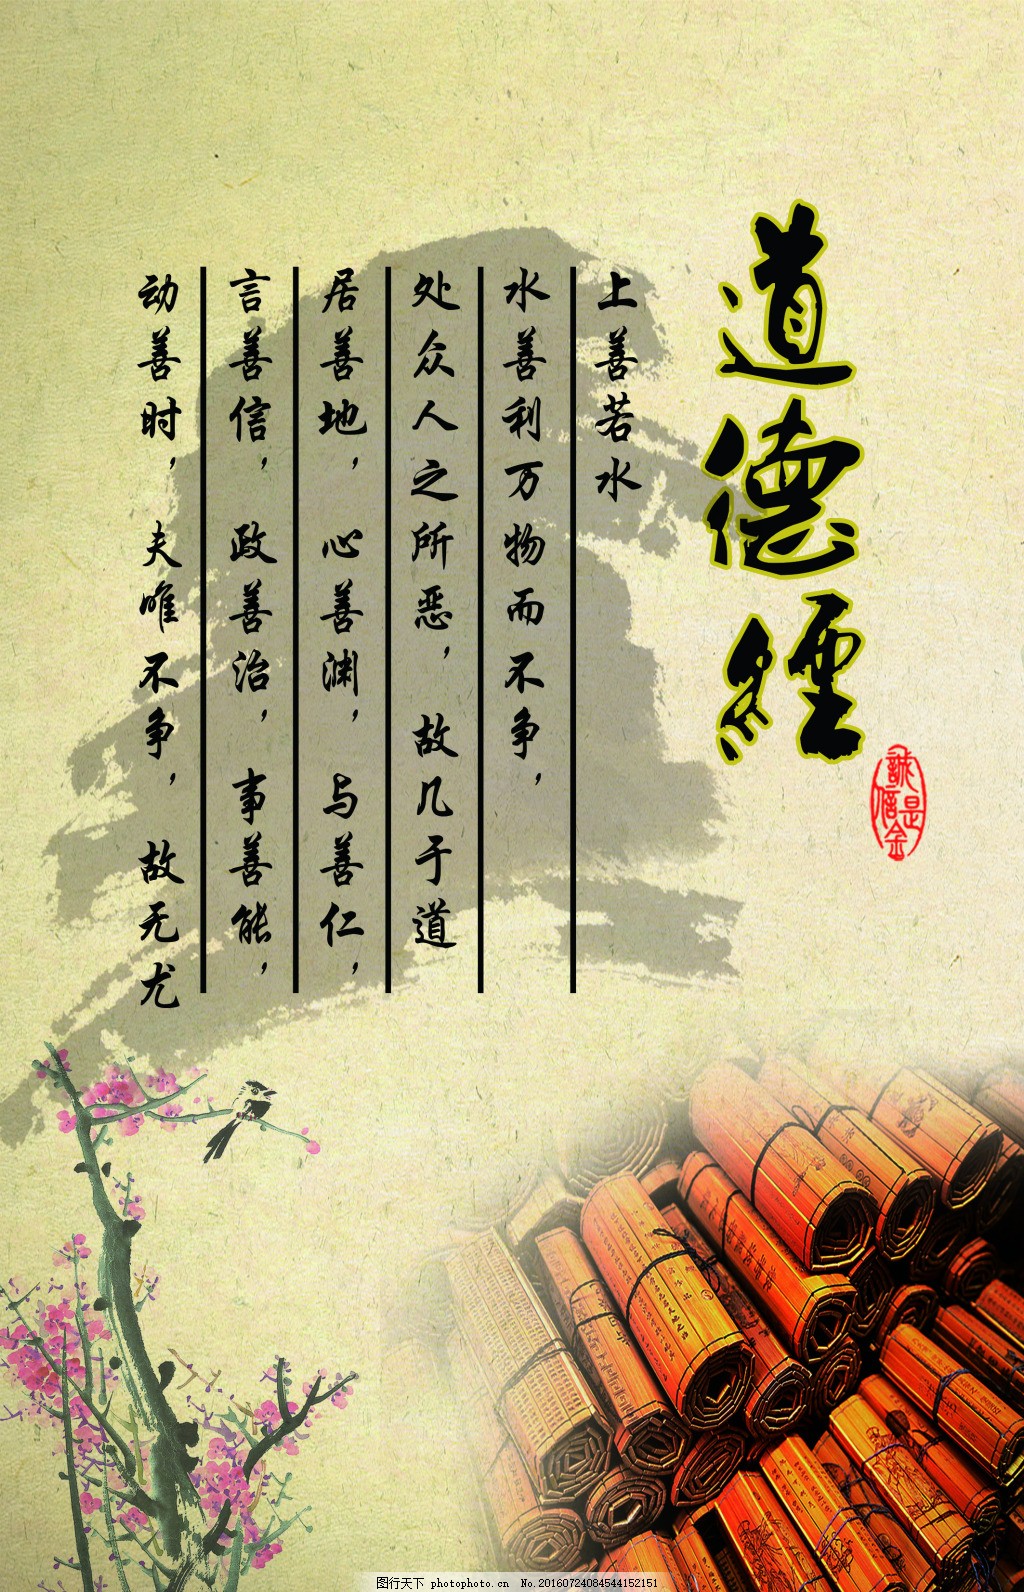 道德經
誠信是金
上善若水
水善利万物而不争，
处众人之所恶，故几于道
居善地，心善渊，与善仁，
言善信，政善治，事善能，
动善时，夫唯不争，故无尤
图行天下 photophoto.cn No.20160724084544152151